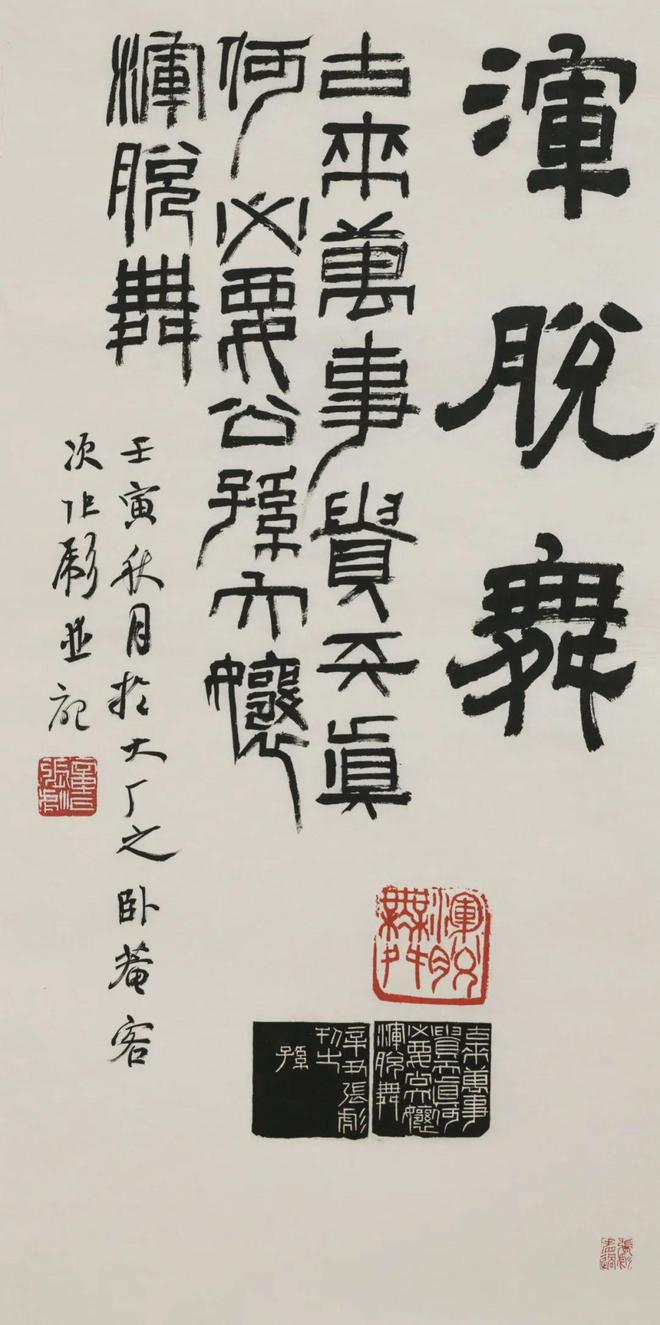 渾脫舞
古來萬事貴天真
何必要公孫大孃
渾脫舞
壬寅秋月於大厂之卧菴客
次張彪並記
渾脫舞
古來萬事
貴天真何
必要公大孃
渾脫舞
辛丑張彪
刊之
孫